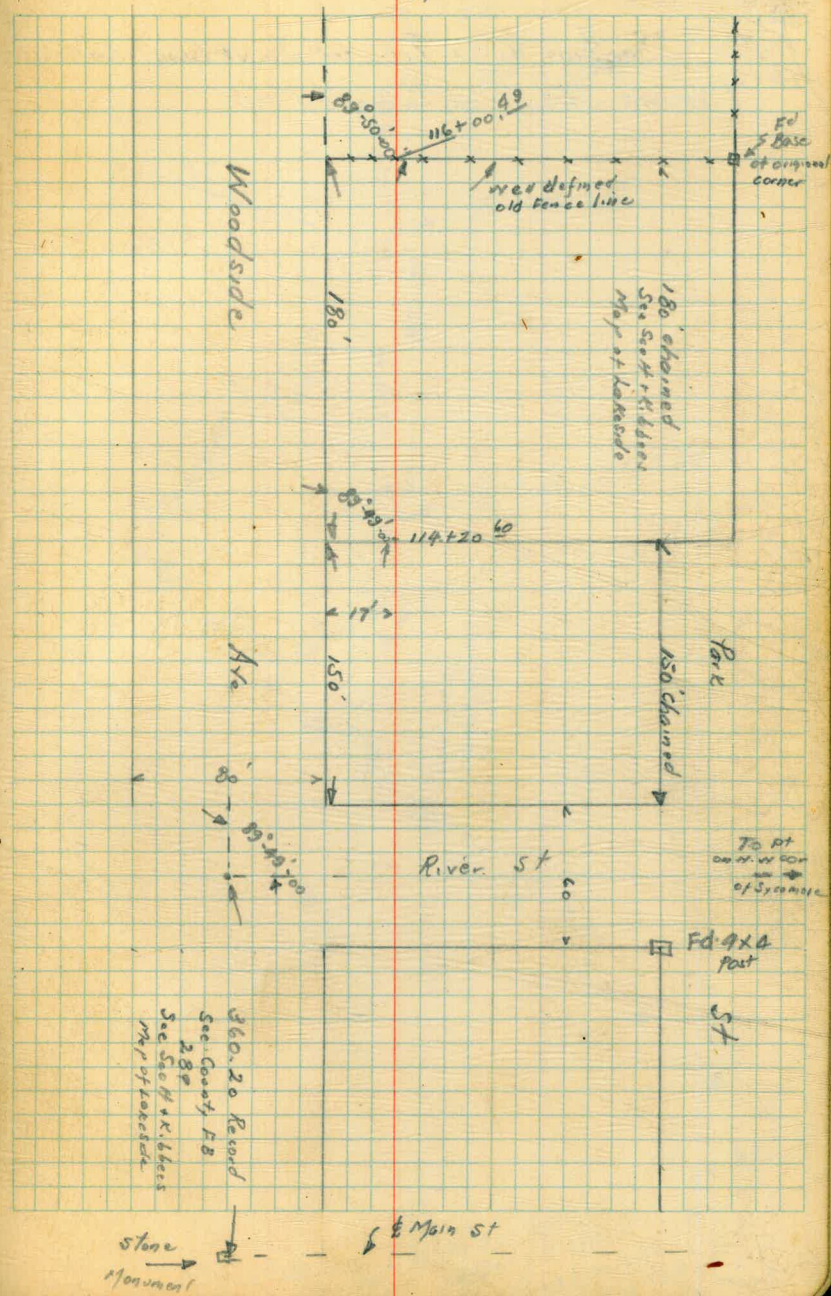 89°-50'-00"
116+00.49
Fd
Base
of original
corner
Well defined
old Fence line
Woodside
180'
180' chained
See Scott & Kibbees
Map of Lakeside
89°-49'
114+20 60
17'
Ave
150'
150' chained
Park
80'
89°-49'-00
River St
60
To Pt
on N.W Cor
of Sycamore
Fd 4x4
Post
St
360.20 Record
See County F.B
289
See Scott & Kibbees
Map of Lakeside
℄ Main St
Stone
Monument